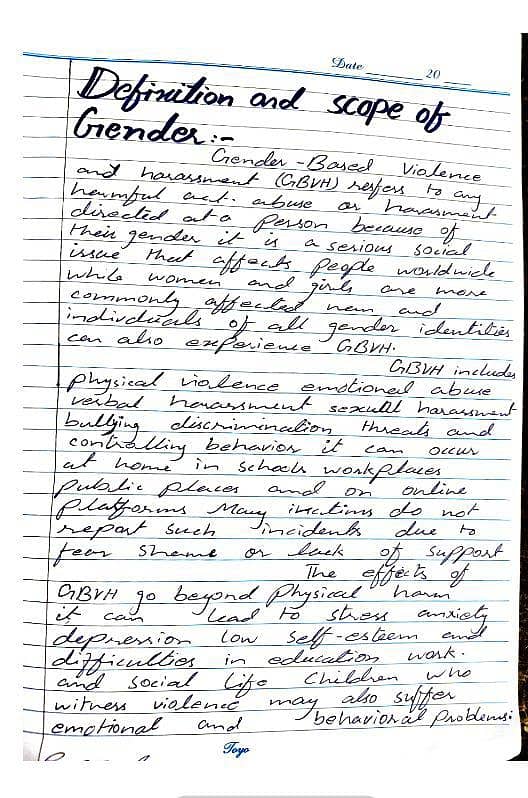 Date ______ 20 ___
Definition and scope of
Gender:-
Gender-Based Violence
and harassment (GBVH) refers to any
harmful act. abuse or harasment
directed at a person because of
their gender it is a serious social
issue that affects people worldwide
while women and girls are more
commonly affected men and
individuals of all gender identities
can also experience GBVH.
GBVH includes
physical violence emotional abuse
verbal harassment sexual harassment
bullying discrimination threats and
controlling behavior it can occur
at home in schools workplaces
public places and on online
platforms Many victims do not
report such incidents due to
fear shame or lack of support
The effects of
GBVH go beyond Physical harm
it can lead to stress anxiety
depression low self-esteem and
difficulties in education work.
and social life Children who
witness violence may also suffer
emotional and behavioral problems:
Toyo